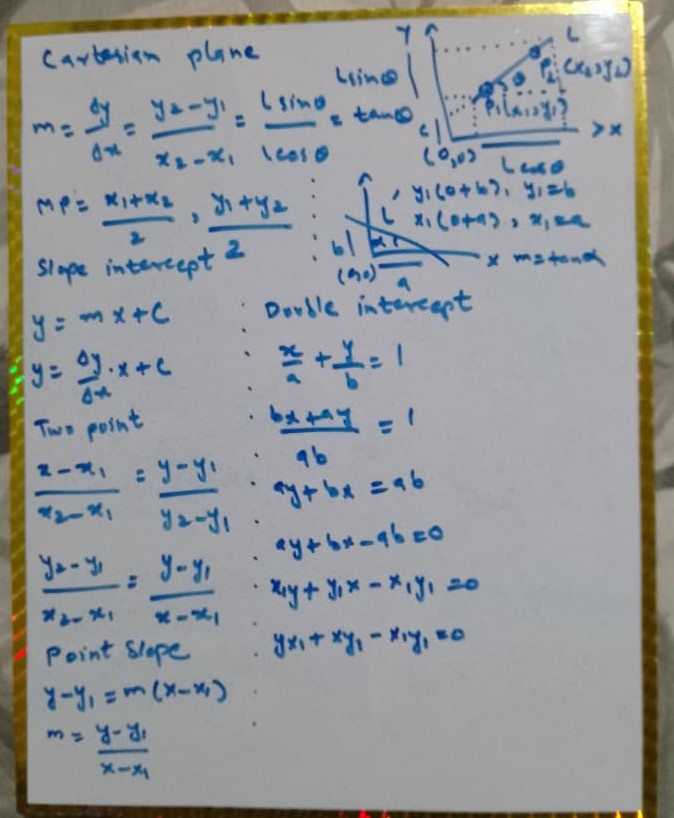 Cartesian plane
m = Δy/Δx = (y₂-y₁)/(x₂-x₁) = L sinθ / L cosθ = tanθ
Y
L
L sinθ
θ
P₂ (x₂, y₂)
P₁ (x₁, y₁)
c
(0,0)
> x
L cosθ
MP = (x₁+x₂)/2 , (y₁+y₂)/2
L
y₁(0+b), y₁=b
x₁(0+a), x₁=a
b
α
x m = tanα
(0,0)
a
Slope intercept
y = mx+c
y = Δy/Δx . x + c
Two point
(x-x₁)/(x₂-x₁) = (y-y₁)/(y₂-y₁)
(y₂-y₁)/(x₂-x₁) = (y-y₁)/(x-x₁)
Point Slope
y-y₁ = m(x-x₁)
m = (y-y₁)/(x-x₁)
Double intercept
x/a + y/b = 1
(bx+ay)/ab = 1
ay+bx = ab
ay+bx-ab=0
x₁y + y₁x - x₁y₁ = 0
yx₁ + xy₁ - x₁y₁ = 0